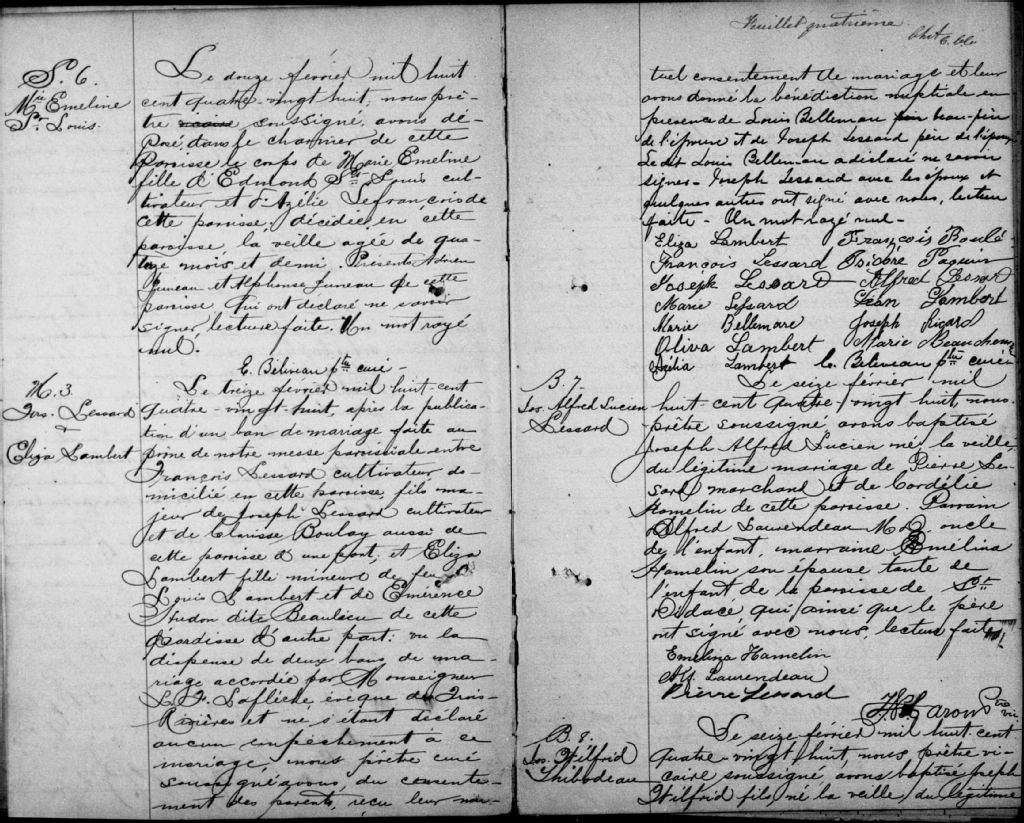 S. 6.
Mie Emeline
St Louis.
Le douze février mil huit
cent quatre-vingt huit, nous prê-
tre soussigné, avons dé-
posé dans le charnier de cette
paroisse le corps de Marie Emeline
fille d'Edmond St Louis cul-
tivateur et d'Azélie Lefrançois de
cette paroisse, décidée en cette
paroisse la veille agée de qua-
tre mois et demi. Présents
Juneau et Alphonse Juneau de cette
paroisse qui ont déclaré ne savoir
signer, lecture faite. Un mot rayé
nul.
E. Béliveau ptre curé
M. 3
Frs. Lessard
&
Eliza Lambert
Le treize février mil huit-cent
quatre-vingt-huit, après la publica-
tion d'un ban de mariage faite au
prône de notre messe paroissiale entre
François Lessard cultivateur do-
micilié en cette paroisse, fils ma-
jeur de Joseph Lessard cultivateur
et de Clarisse Boulay aussi de
cette paroisse d'une part, et Eliza
Lambert fille mineure de feu
Louis Lambert et de Emérence
Hudon dite Beaulieu de cette
paroisse d'autre part: vu la
dispense de deux bans de ma-
riage accordée par Monseigneur
L. F. Laflèche, évêque des Trois-
Rivières et ne s'étant déclaré
aucun empêchement à ce
mariage, nous prêtre curé
soussigné avons, du consente-
ment des parents, reçu leur mu-
Feuillet quatrième
tuel consentement de mariage et leur
avons donné la bénédiction nuptiale en
présence de Louis Bellemare beau-père
de l'épouse et de Joseph Lessard père de l'époux
Le dit Louis Bellemare a déclaré ne savoir
signer- Joseph Lessard avec les époux et
quelques autres ont signé avec nous, lecture
faite- Un mot rayé nul-
Eliza Lambert François Boulé
François Lessard Isidore Paquin
Joseph Lessard Alfred
Marie Lessard Jean Lambert
Marie Bellemare Joseph Ricard
Oliva Lambert Marie Beauchemin
Délia Lambert E. Béliveau ptre curé
B. 7.
Jos. Alfred Lucien
Lessard
Le seize février mil
huit-cent quatre-vingt huit nous
prêtre soussigné avons baptisé
Joseph Alfred Lucien né la veille,
du légitime mariage de Pierre Les-
sard marchand et de Cordélie
Hamelin de cette paroisse. Parrain
Alfred Laurendeau M.D. oncle
de l'enfant, marraine Emélina
Hamelin son épouse tante de
l'enfant de la paroisse de St
Didace, qui ainsi que le père
ont signé avec nous, lecture faite
Emelina Hamelin
Alf. Laurendeau
Pierre Lessard
B. 8.
Jos. Wilfrid
Thibodeau
Le seize février mil huit cent
quatre-vingt huit, nous, prêtre vi-
caire soussigné, avons baptisé Joseph
Wilfrid fils né la veille, du légitime